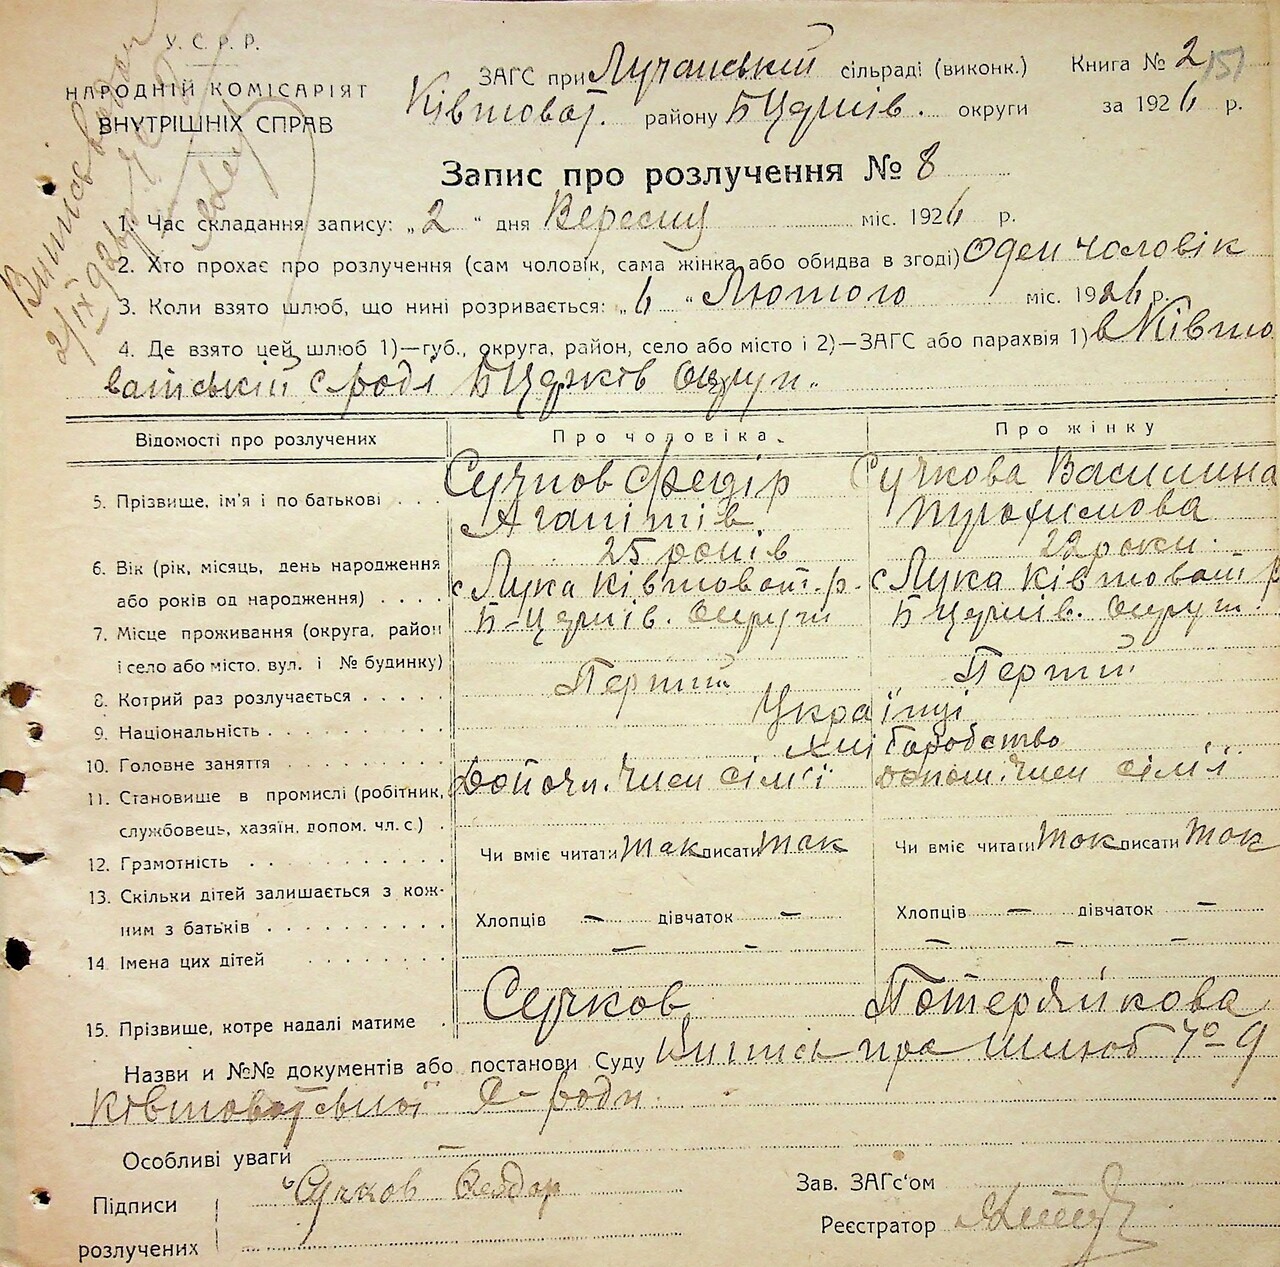 У.С.Р.Р.
НАРОДНІЙ КОМІСАРІЯТ
ВНУТРІШНІХ СПРАВ
ЗАГС при Лучанській сільраді (виконк.) Книга № 2 151
Ківшоват. району Б Церків. округи за 1926 р.
Запис про розлучення № 8
1. Час складання запису: „2" дня Вересня міс. 1926 р.
2. Хто прохає про розлучення (сам чоловік, сама жінка або обидва в згоді) Оден чоловік
3. Коли взято шлюб, що нині розривається: „6" Лютого міс. 1926 р.
4. Де взято цей шлюб 1)—губ., округа, район, село або місто і 2)—ЗАГС або парахвія 1) в Ківшо
ватській с/раді Б Церків Округи.
Відомості про розлучених Про чоловіка. Про жінку
5. Прізвище, ім'я і по батькові Сучков Федір Сучкова Василина
Агапітів Трохимова
6. Вік (рік, місяць, день народження 25 років 22 роки
або років од народження) с Лука Ківшоват. р. с Лука Ківшоват р
7. Місце проживання (округа, район Б-Церків. Округи Б Церків. Округи
і село або місто, вул. і № будинку)
8. Котрий раз розлучається Перший Перший
9. Національність Українці
10. Головне заняття Хліборобство
11. Становище в промислі (робітник, Допом. член сім'ї допом. член сім'ї
службовець, хазяїн, допом. чл. с.)
12. Грамотність Чи вміє читати так писати так Чи вміє читати так писати так
13. Скільки дітей залишається з кож-
ним з батьків Хлопців — дівчаток — Хлопців — дівчаток —
14. Імена цих дітей — - — - -
15. Прізвище, котре надалі матиме Сучков Потерайкова
Назви и №№ документів або постанови Суду Випись про шлюб № 9
Ківшоватської С-ради.
Особливі уваги —
Підписи Сучков Федор Зав. ЗАГС'ом
розлучених Реєстратор